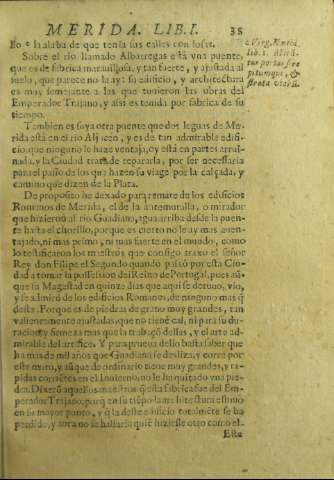 MERIDA. LIB. I. 38
llo ᵉ la alaba de que tenia sus calles con losas.
e Virg. Æneid.
lib. 1.
Sobre el rio llamado Albarregas està vna puente,
que es de fabrica marauillosa, y tan fuerte, y ajustada al
suelo, que parece no la ay: su edificio, y architectura
es muy semejante a las que tuuieron las obras del
Emperador Trajano, y assi es tenida por fabrica de su
tiempo.
Tambien es suya otra puente que dos leguas de Me-
rida està en el rio Aljucen, y es de tan admirable edifi-
cio, que ninguno le haze ventaja, oy está en partes arrui-
nada, y la Ciudad trata de repararla, por ser necessaria
para el passo de los que hazen su viage por la calçada, y
camino que dizen de la Plata.
De proposito he dexado para remate de los edificios
Romanos de Merida, el de la antemuralla, o mirador
que hizieron al rio Guadiana, agua arriba desde la puen-
te hasta el chorillo, porque es cierto no le ay mas auen-
tajado, ni mas primo, ni mas fuerte en el mundo, como
lo testificaron los maestros que consigo traxo el señor
Rey don Filipe el Segundo quando passò por esta Ciu-
dad a tomar la possession del Reino de Portugal, pues aũ
que su Magestad en quinze dias que aqui se detuuo, vio,
y se admirò de los edificios Romanos, de ninguno mas q̃
deste. Porque es de piedras de grano muy grandes, tan
valientemente ajustadas que no tiene cal, ni para su du-
racion y firmeza mas que la trabaçõ dellas, y el arte ad-
mirable del artifice. Y para prueua dello basta saber que
ha mas de mil años que Guadiana se desliza, y corre por
este muro, y aũque de ordinario tiene muy grandes, y ra-
pidas corriẽtes en el Inuierno, no le ha quitado vna pie-
dra. Dixerõ aquellos maestros q̃ esta fabrica fue del Em-
perador Trajano, porq̃ en su tiẽpo la architectura estuuo
en su mayor punto, y q̃ la deste edificio totalmẽte se ha
perdido, y aora no se hallaria quiẽ hiziesse otro como el.
Este